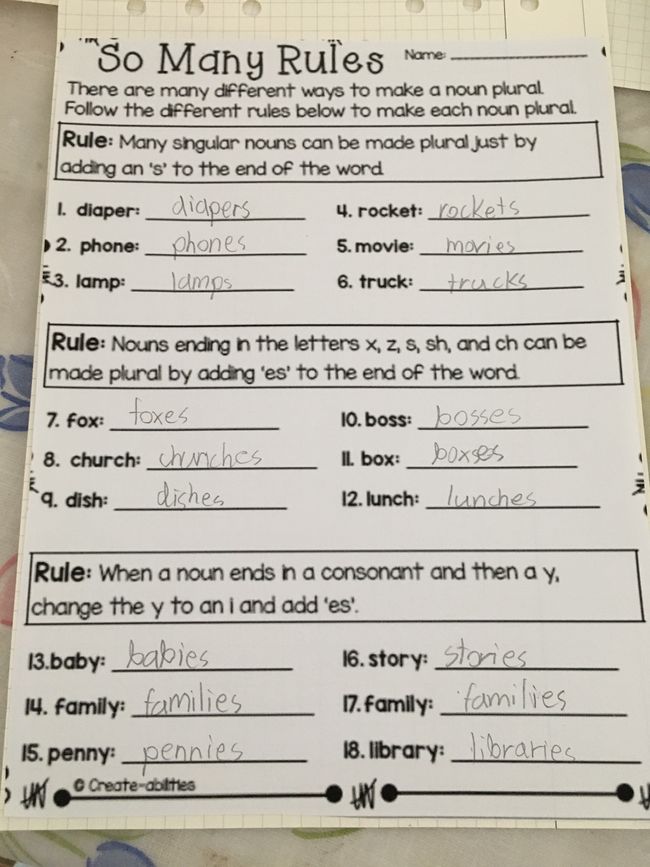 So Many Rules Name:
There are many different ways to make a noun plural.
Follow the different rules below to make each noun plural.
Rule: Many singular nouns can be made plural just by
adding an 's' to the end of the word.
1. diaper: diapers 4. rocket: rockets
2. phone: phones 5. movie: movies
3. lamp: lamps 6. truck: trucks
Rule: Nouns ending in the letters x, z, s, sh, and ch can be
made plural by adding 'es' to the end of the word.
7. fox: foxes 10. boss: bosses
8. church: churches 11. box: boxses
9. dish: dishes 12. lunch: lunches
Rule: When a noun ends in a consonant and then a y,
change the y to an i and add 'es'.
13. baby: babies 16. story: stories
14. family: families 17. family: families
15. penny: pennies 18. library: libraries
© Create-abilities